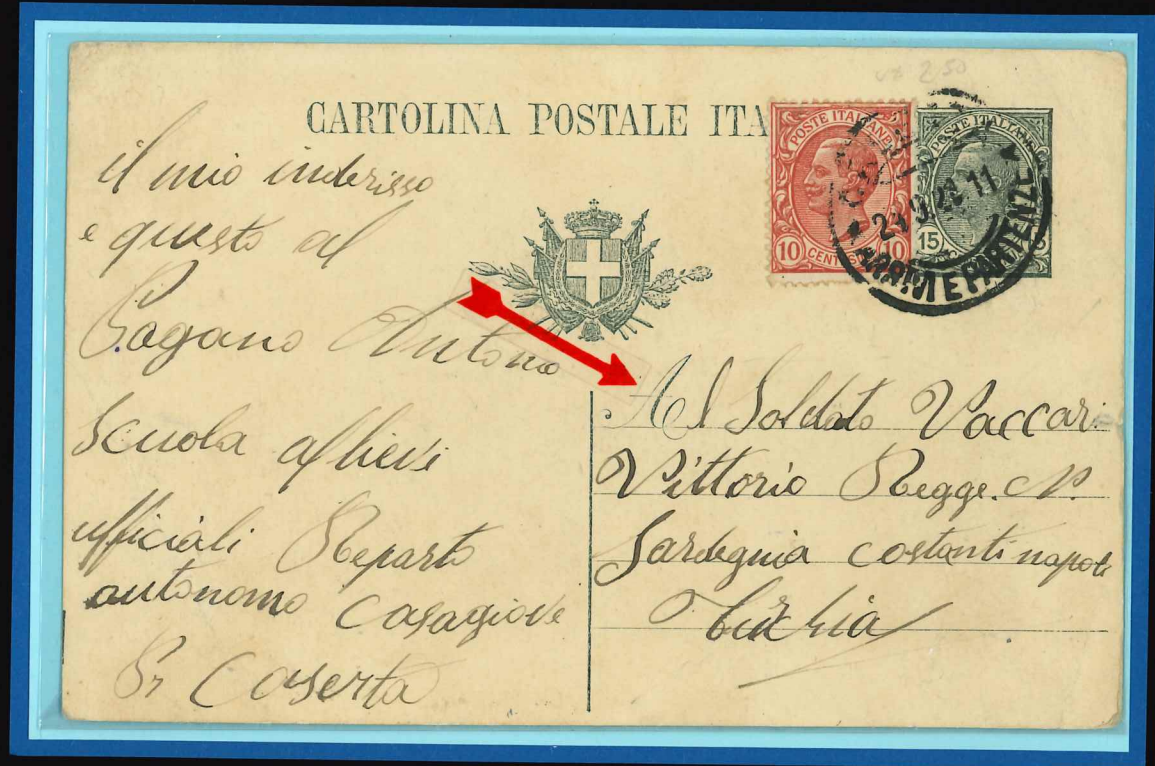 CARTOLINA POSTALE ITA
POSTE ITALIANE
10 CENTES 10
POSTE ITALIANE
15
ARRIVI E PARTENZE
il mio inderisso
e questo al
Pagano Antonio
Scuola allievi
ufficiali Reparto
autonomo Casagiove
Pr Caserta
Al Soldato Vaccari
Vittorio Regge. N.
Sardegnia Costantinapoli
Turkia